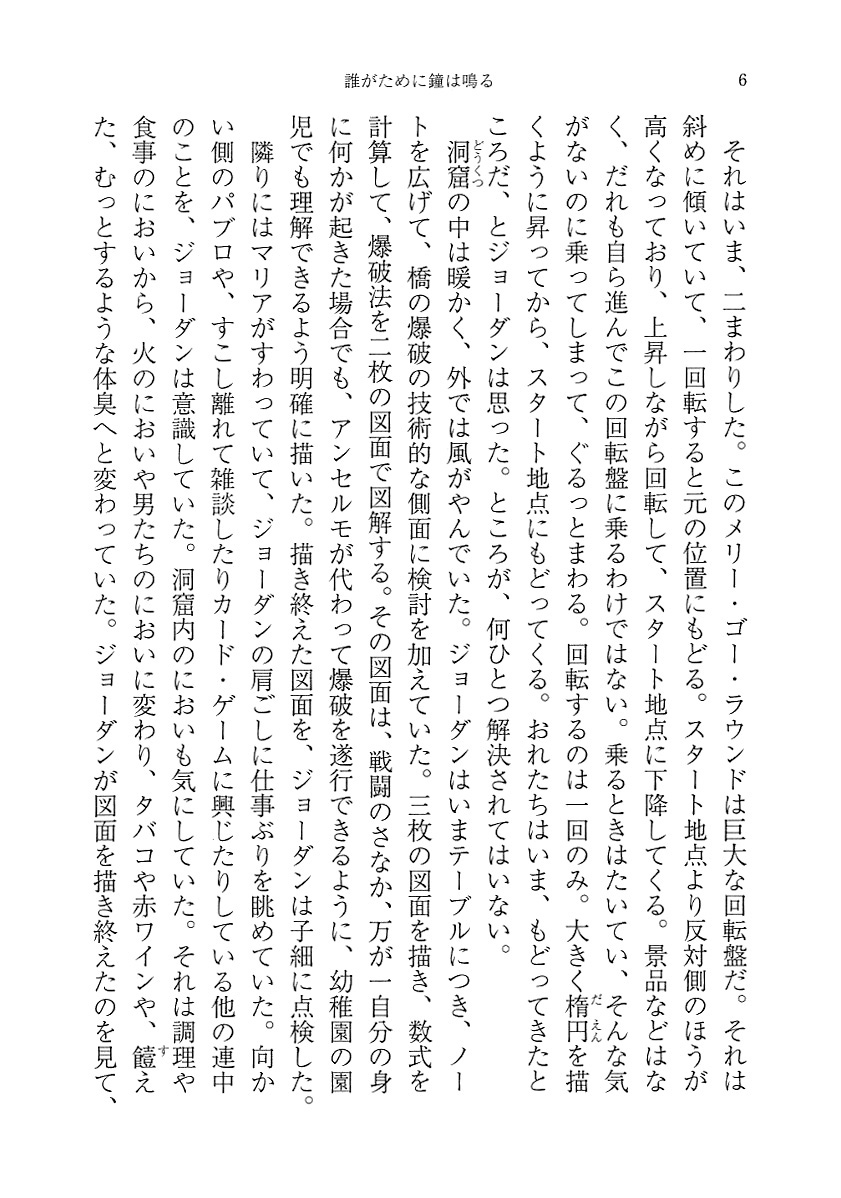 誰がために鐘は鳴る
6
それはいま、二まわりした。このメリー・ゴー・ラウンドは巨大な回転盤だ。それは
斜めに傾いていて、一回転すると元の位置にもどる。スタート地点より反対側のほうが
高くなっており、上昇しながら回転して、スタート地点に下降してくる。景品などはな
く、だれも自ら進んでこの回転盤に乗るわけではない。乗るときはたいてい、そんな気
がないのに乗ってしまって、ぐるっとまわる。回転するのは一回のみ。大きく楕円を描
くように昇ってから、スタート地点にもどってくる。おれたちはいま、もどってきたと
ころだ、とジョーダンは思った。ところが、何ひとつ解決されてはいない。
洞窟の中は暖かく、外では風がやんでいた。ジョーダンはいまテーブルにつき、ノー
トを広げて、橋の爆破の技術的な側面に検討を加えていた。三枚の図面を描き、数式を
計算して、爆破法を二枚の図面で図解する。その図面は、戦闘のさなか、万が一自分の身
に何かが起きた場合でも、アンセルモが代わって爆破を遂行できるように、幼稚園の園
児でも理解できるよう明確に描いた。描き終えた図面を、ジョーダンは子細に点検した。
隣りにはマリアがすわっていて、ジョーダンの肩ごしに仕事ぶりを眺めていた。向か
い側のパブロや、すこし離れて雑談したりカード・ゲームに興じたりしている他の連中
のことを、ジョーダンは意識していた。洞窟内のにおいも気にしていた。それは調理や
食事のにおいから、火のにおいや男たちのにおいに変わり、タバコや赤ワインや、饐え
た、むっとするような体臭へと変わっていた。ジョーダンが図面を描き終えたのを見て、